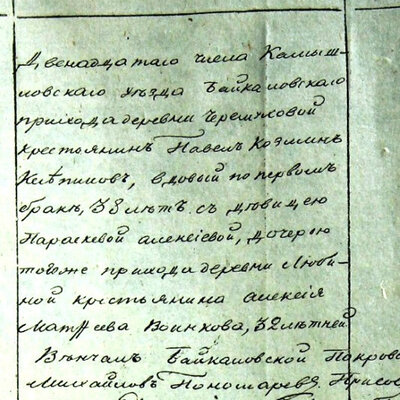 Двенадцатаго числа Камыш-
ловскаго уѣзда Байкаловскаго
прихода деревни Черемховой
крестьянинъ Павелъ Козминъ
вдовый по первомъ
бракѣ, 38 лѣтъ съ дѣвицею
Параскевой Алексіевой, дочерью
тогоже прихода деревни Люби-
ной крестьянина Алексія
Матѳеева Воинкова, 32 лѣтней
Вѣнчалъ Байкаловской Покров
Михайловъ Пономаревъ. Присо